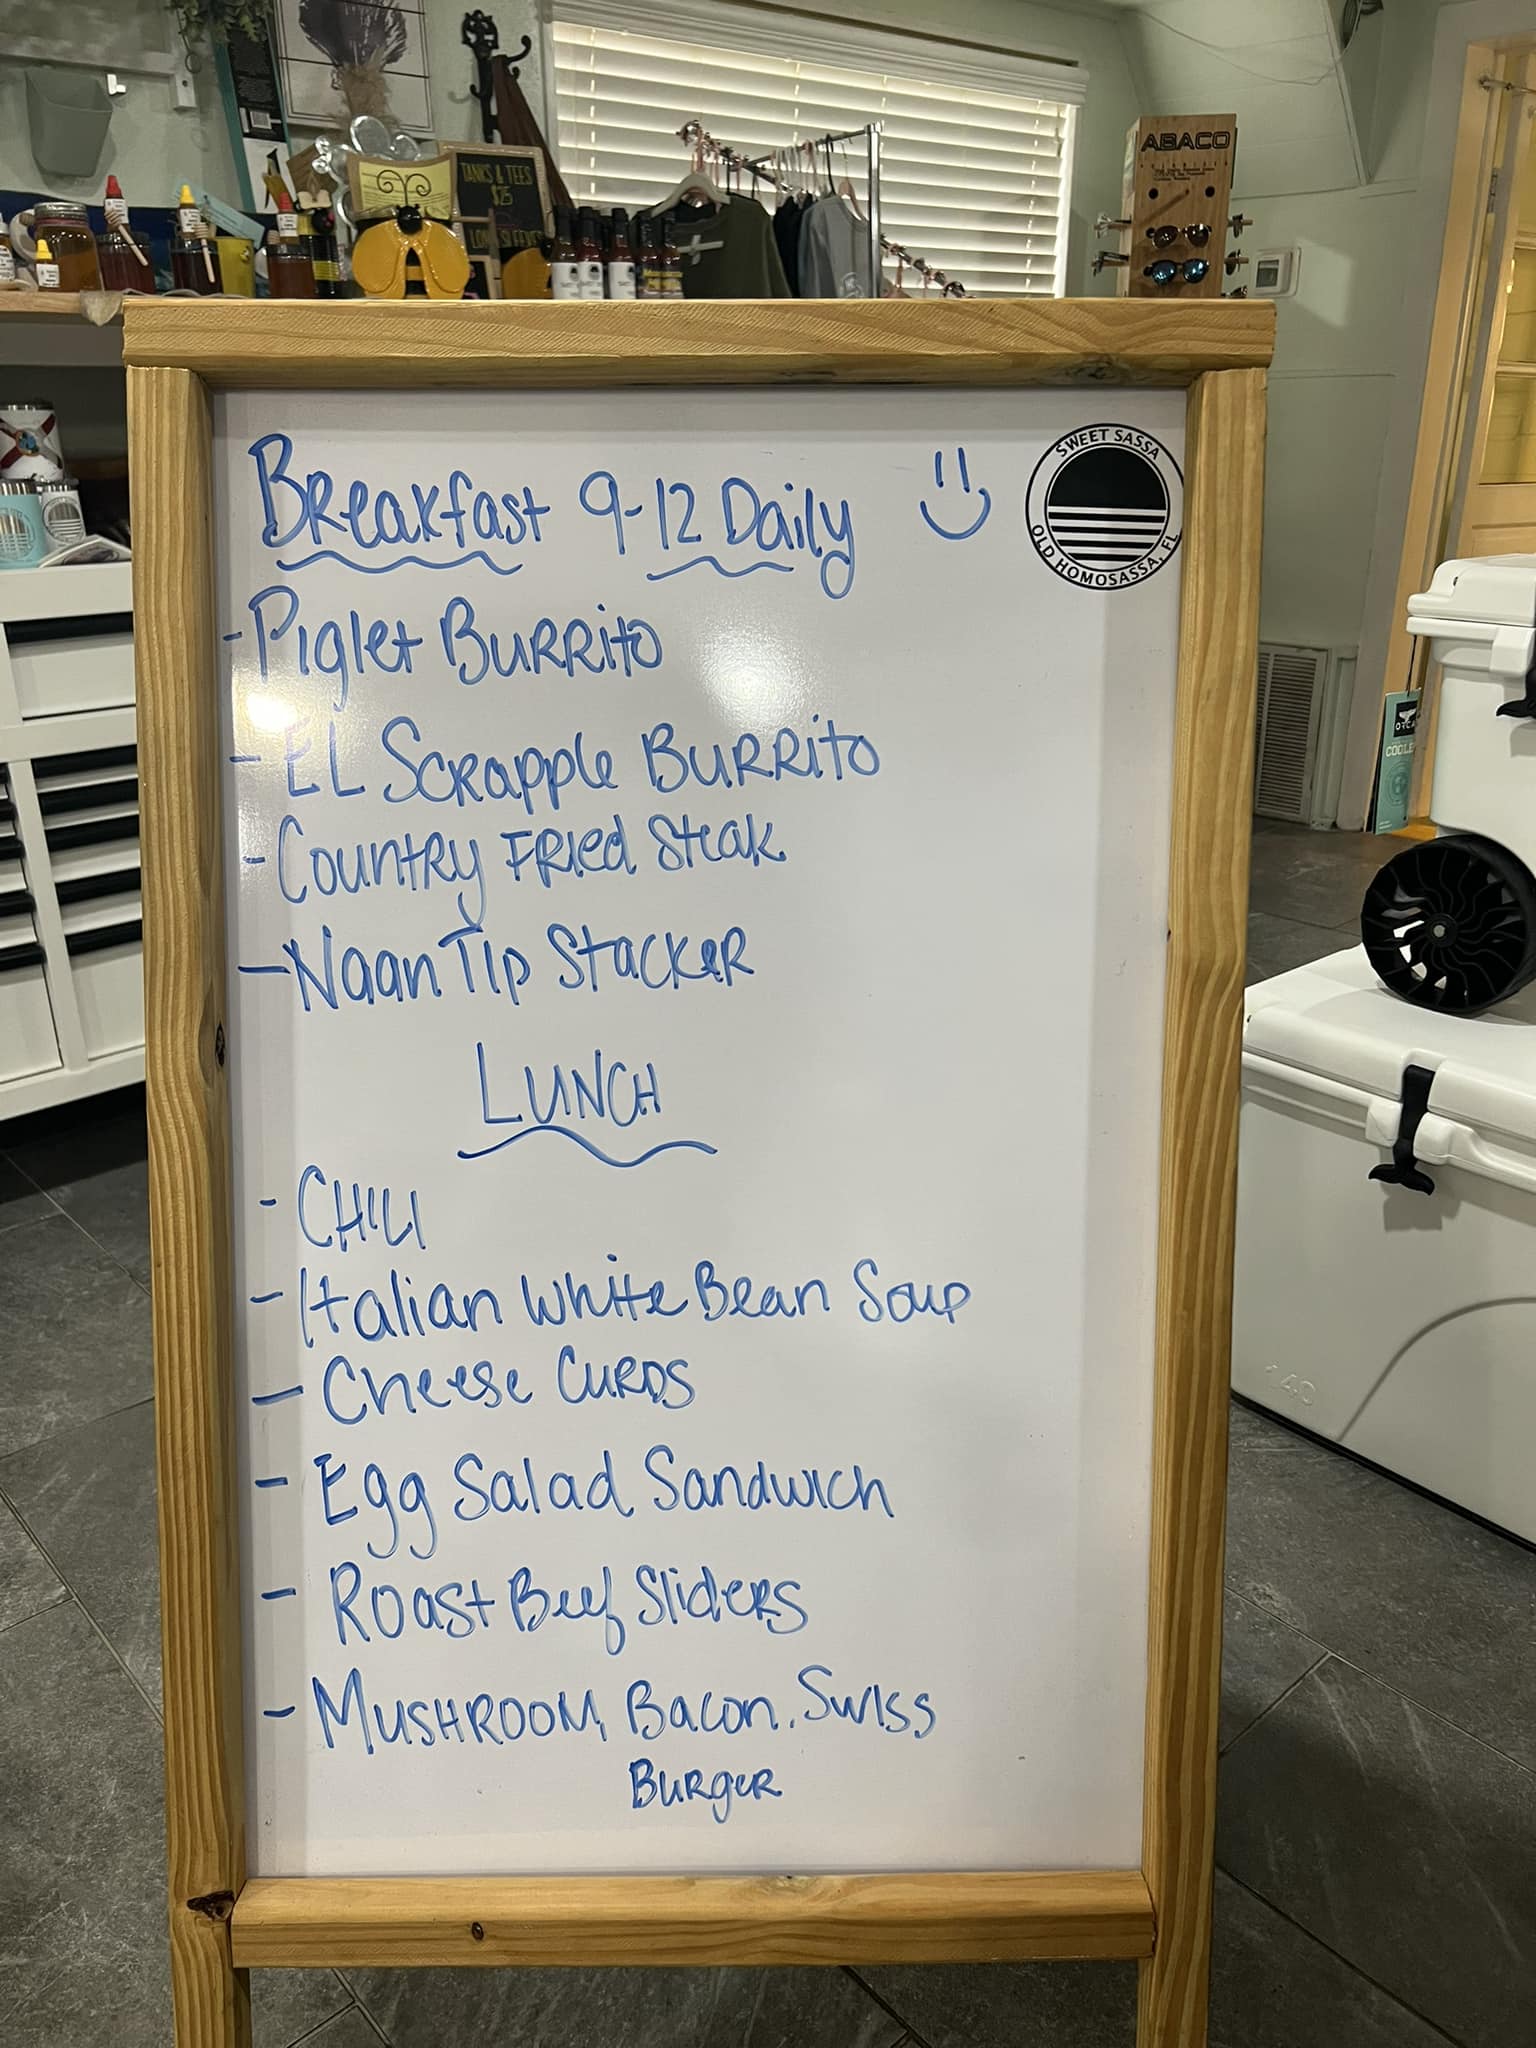 ABACO
TANKS & TEES
$25
LONG SLEEVES
SWEET SASSA
OLD HOMOSASSA, FL
Breakfast 9-12 Daily
- Piglet Burrito
- EL Scrapple Burrito
- Country Fried Steak
- Naan Tip Stacker
LUNCH
- CHILI
- Italian White Bean Soup
- Cheese Curds
- Egg Salad Sandwich
- Roast Beef Sliders
- Mushroom, Bacon, Swiss
Burger
ORCA
COOLER
140